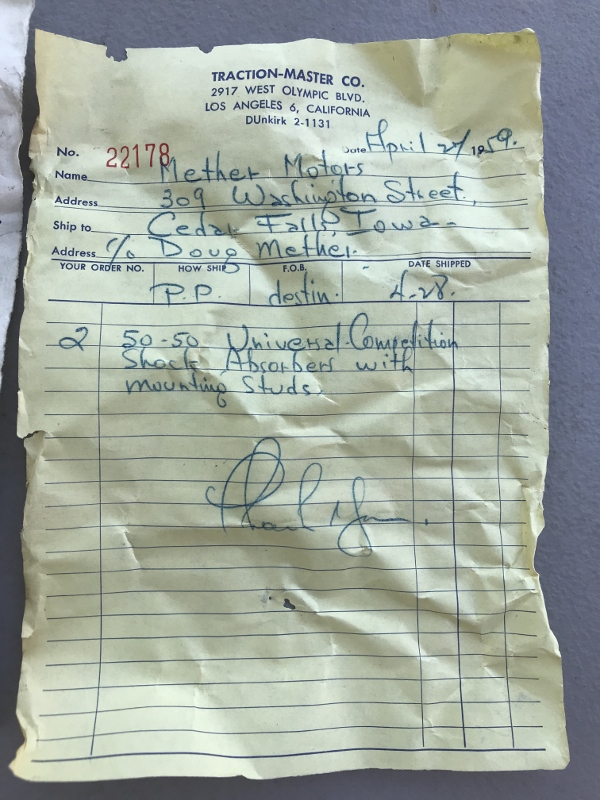 TRACTION-MASTER CO.
2917 WEST OLYMPIC BLVD.
LOS ANGELES 6, CALIFORNIA
DUnkirk 2-1131
No. 22178 Date April 27 1959.
Name Mether Motors
Address 309 Washington Street,
Ship to Cedar Falls, Iowa
Address c/o Doug Mether.
YOUR ORDER NO. HOW SHIP F.O.B. DATE SHIPPED
P.P. destin. 4-28.
2 50-50 Universal Competition
Shock Absorbers with
mounting Studs.
Thank You.